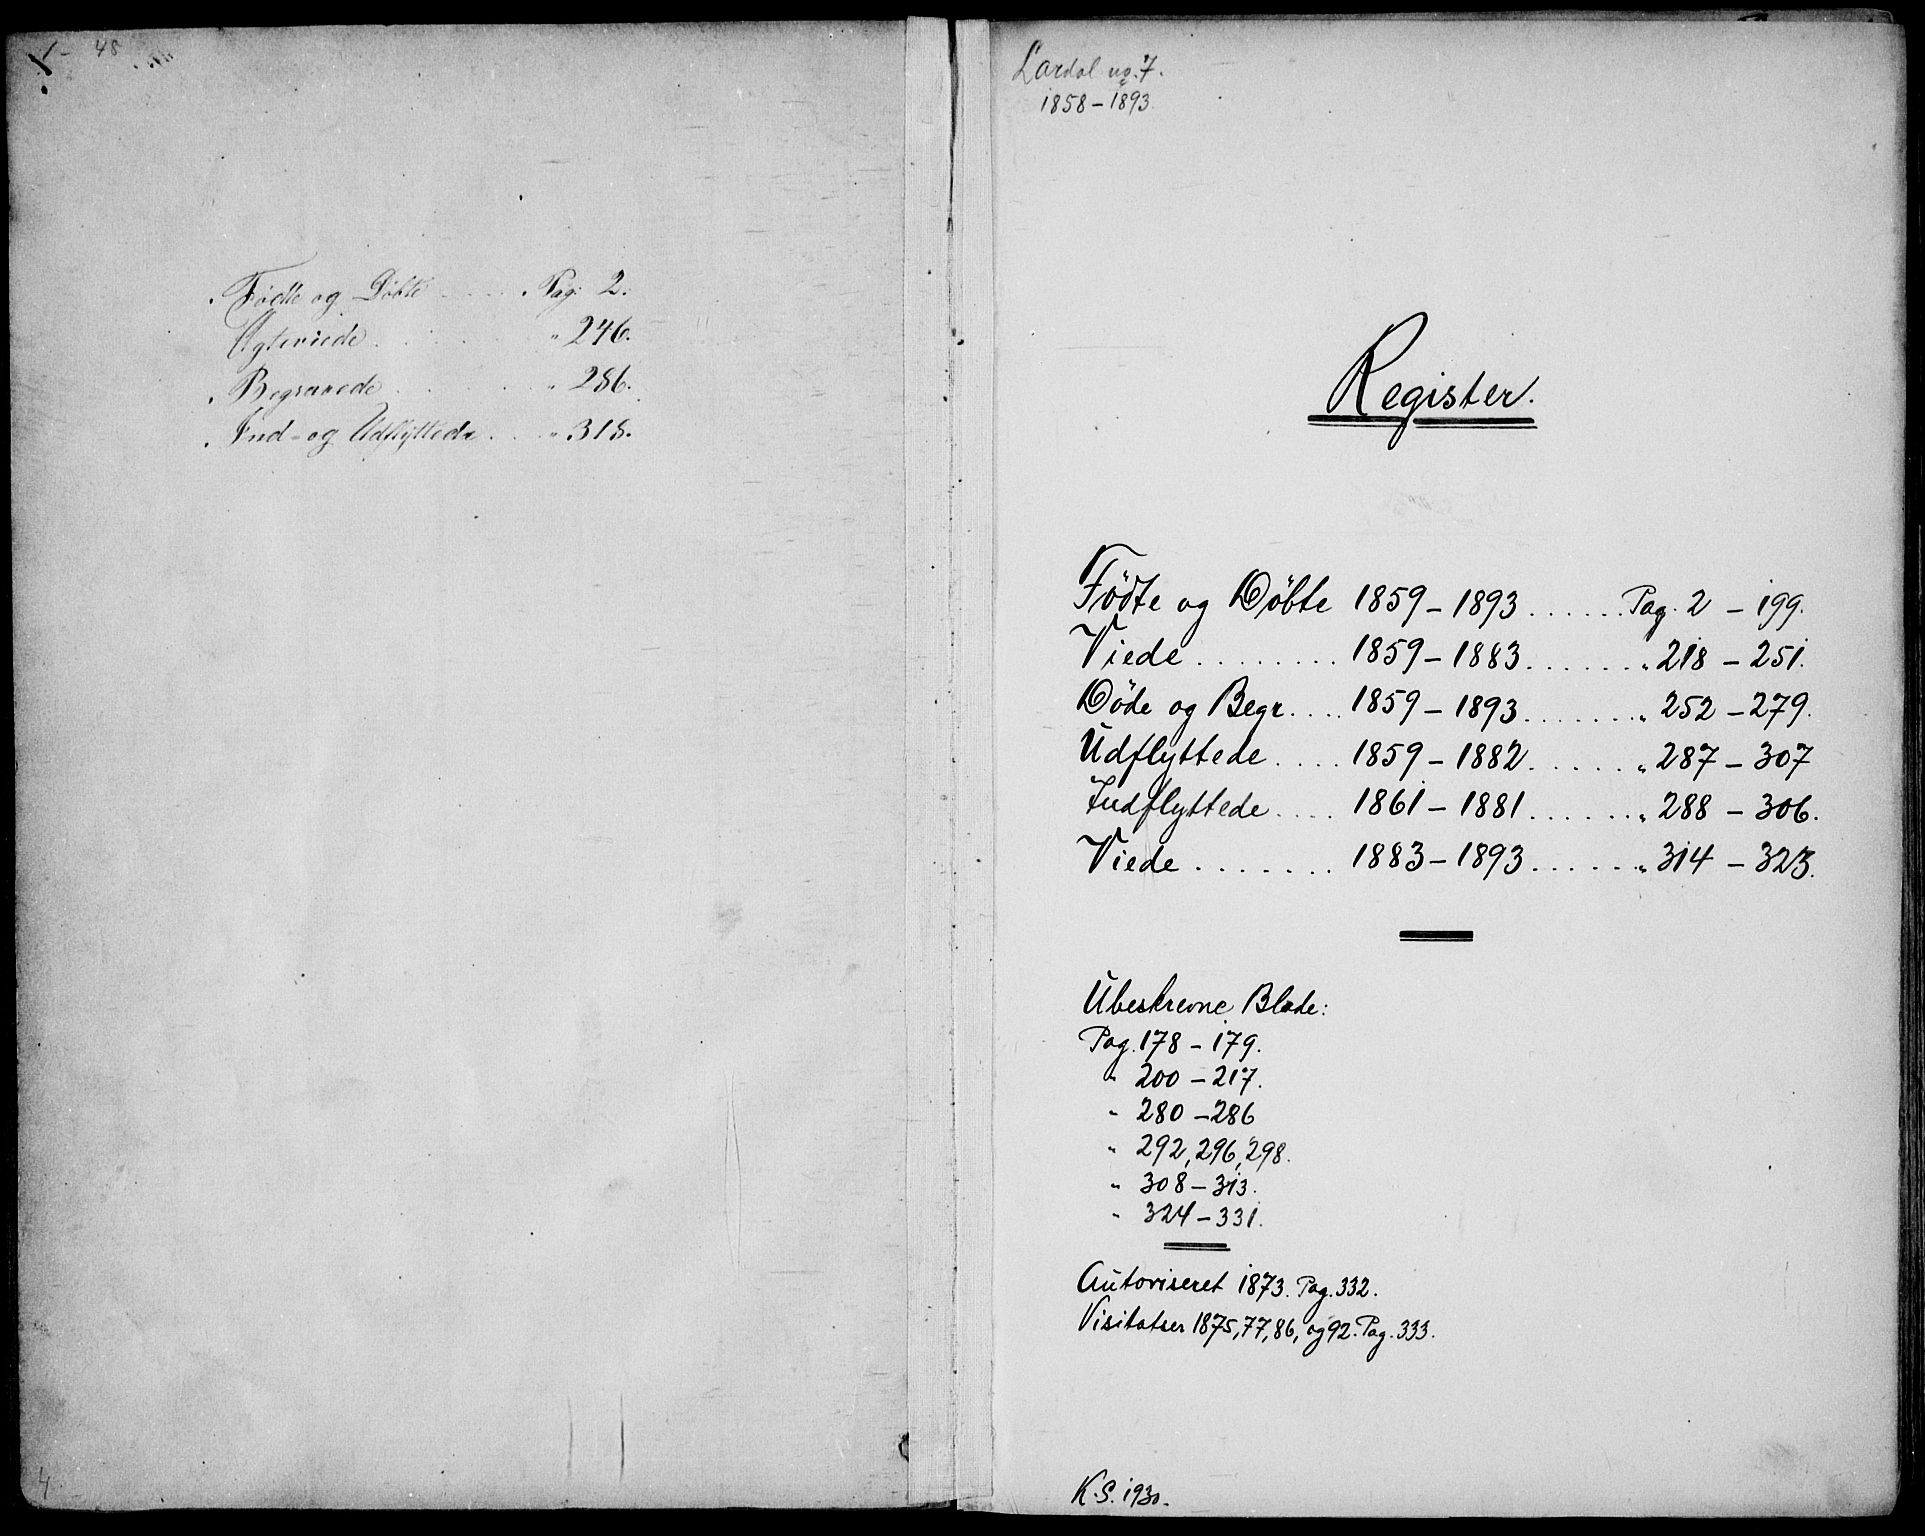 48
Fødte og Døbte . . . . . Pag: 2.
Ægteviede . . . . . " 246.
Begravede . . . . . " 286.
Ind- og Udflyttede . . . . " 318.
4
Lardal no. 7.
1858-1893.
Register.
Födte og Döbte 1859-1893 . . . . . . Pag. 2 - 199.
Viede . . . . . . . . 1859-1883 . . . . . . " 218 - 251.
Döde og Begr. . . . 1859-1893 . . . . . . " 252 - 279.
Udflyttede . . . . 1859-1882 . . . . . . " 287 - 307
Indflyttede . . . . 1861-1881 . . . . . . " 288 - 306.
Viede . . . . . . . 1883-1893 . . . . . . " 314 - 323.
Ubeskrevne Blade:
Pag. 178-179.
" 200-217.
" 280-286
" 292, 296, 298.
" 308-313.
" 324-331.
Autoriseret 1873. Pag. 332.
Visitatser 1875, 77, 86, og 92. Pag. 333.
K.S. 1930.